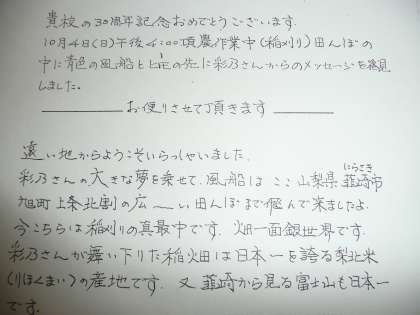 貴校の30周年記念おめでとうございます.
10月4日(日)午後4:00頃農作業中(稲刈り)田んぼの
中に青色の風船と の先に彩乃さんからのメッセージを発見
しました。
お便りさせて頂きます
遠い地からようこそいらっしゃいました.
彩乃さんの大きな夢を乗せて、風船は ここ山梨県 韮崎市
にらさき
旭町上条北割の広〜い田んぼまで飛んで来ましたよ.
今こちらは稲刈りの真最中です. 畑一面銀世界です.
彩乃さんが舞い下りた稲畑は日本一を誇る梨北米
(りほくまい)の産地です. 又 韮崎から見る富士山も日本一
です.